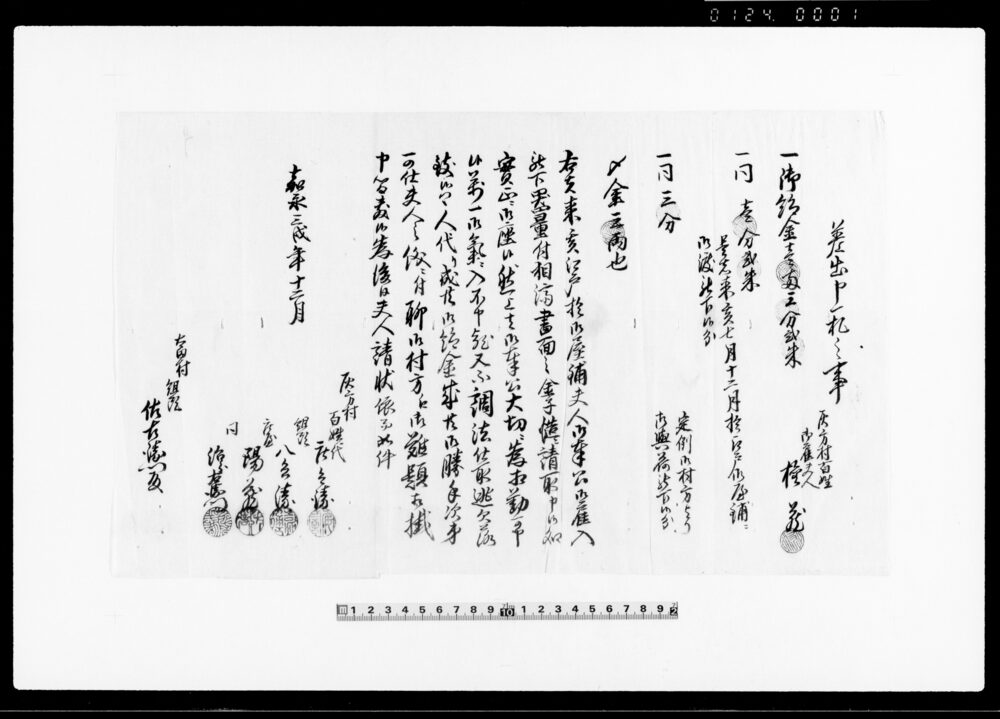 0124 0001
差出申一札之事
一御給金壱両三分弐朱
灰方村百姓
御雇夫人
権蔵
一同 壱分弐朱
是者来亥七月十二月於江戸御屋鋪ニ
御渡被下候分
一同 三分
定例御村方より
御与荷被下候分
〆金三両也
右者来亥江戸於御屋鋪夫人御奉公御雇入
被下思量付相済書面之金子慥ニ請取申候如
実正ニ御座候然上者御奉公大切ニ為相勤可申
候万一御気ニ入不申歟又ハ不調法仕取逃欠落
致候ハヽ人代り或者御給金成共御勝手次第
可仕夫人之儀ニ付聊御村方江御難題相掛
申間敷候為後日夫人請状依而如件
嘉永三戌年十二月
灰方村
百姓代
組頭
八兵衛
庄屋
同
太田村
組頭
佐右衛門殿
1 2 3 4 5 6 7 8 9 10 1 2 3 4 5 6 7 8 9